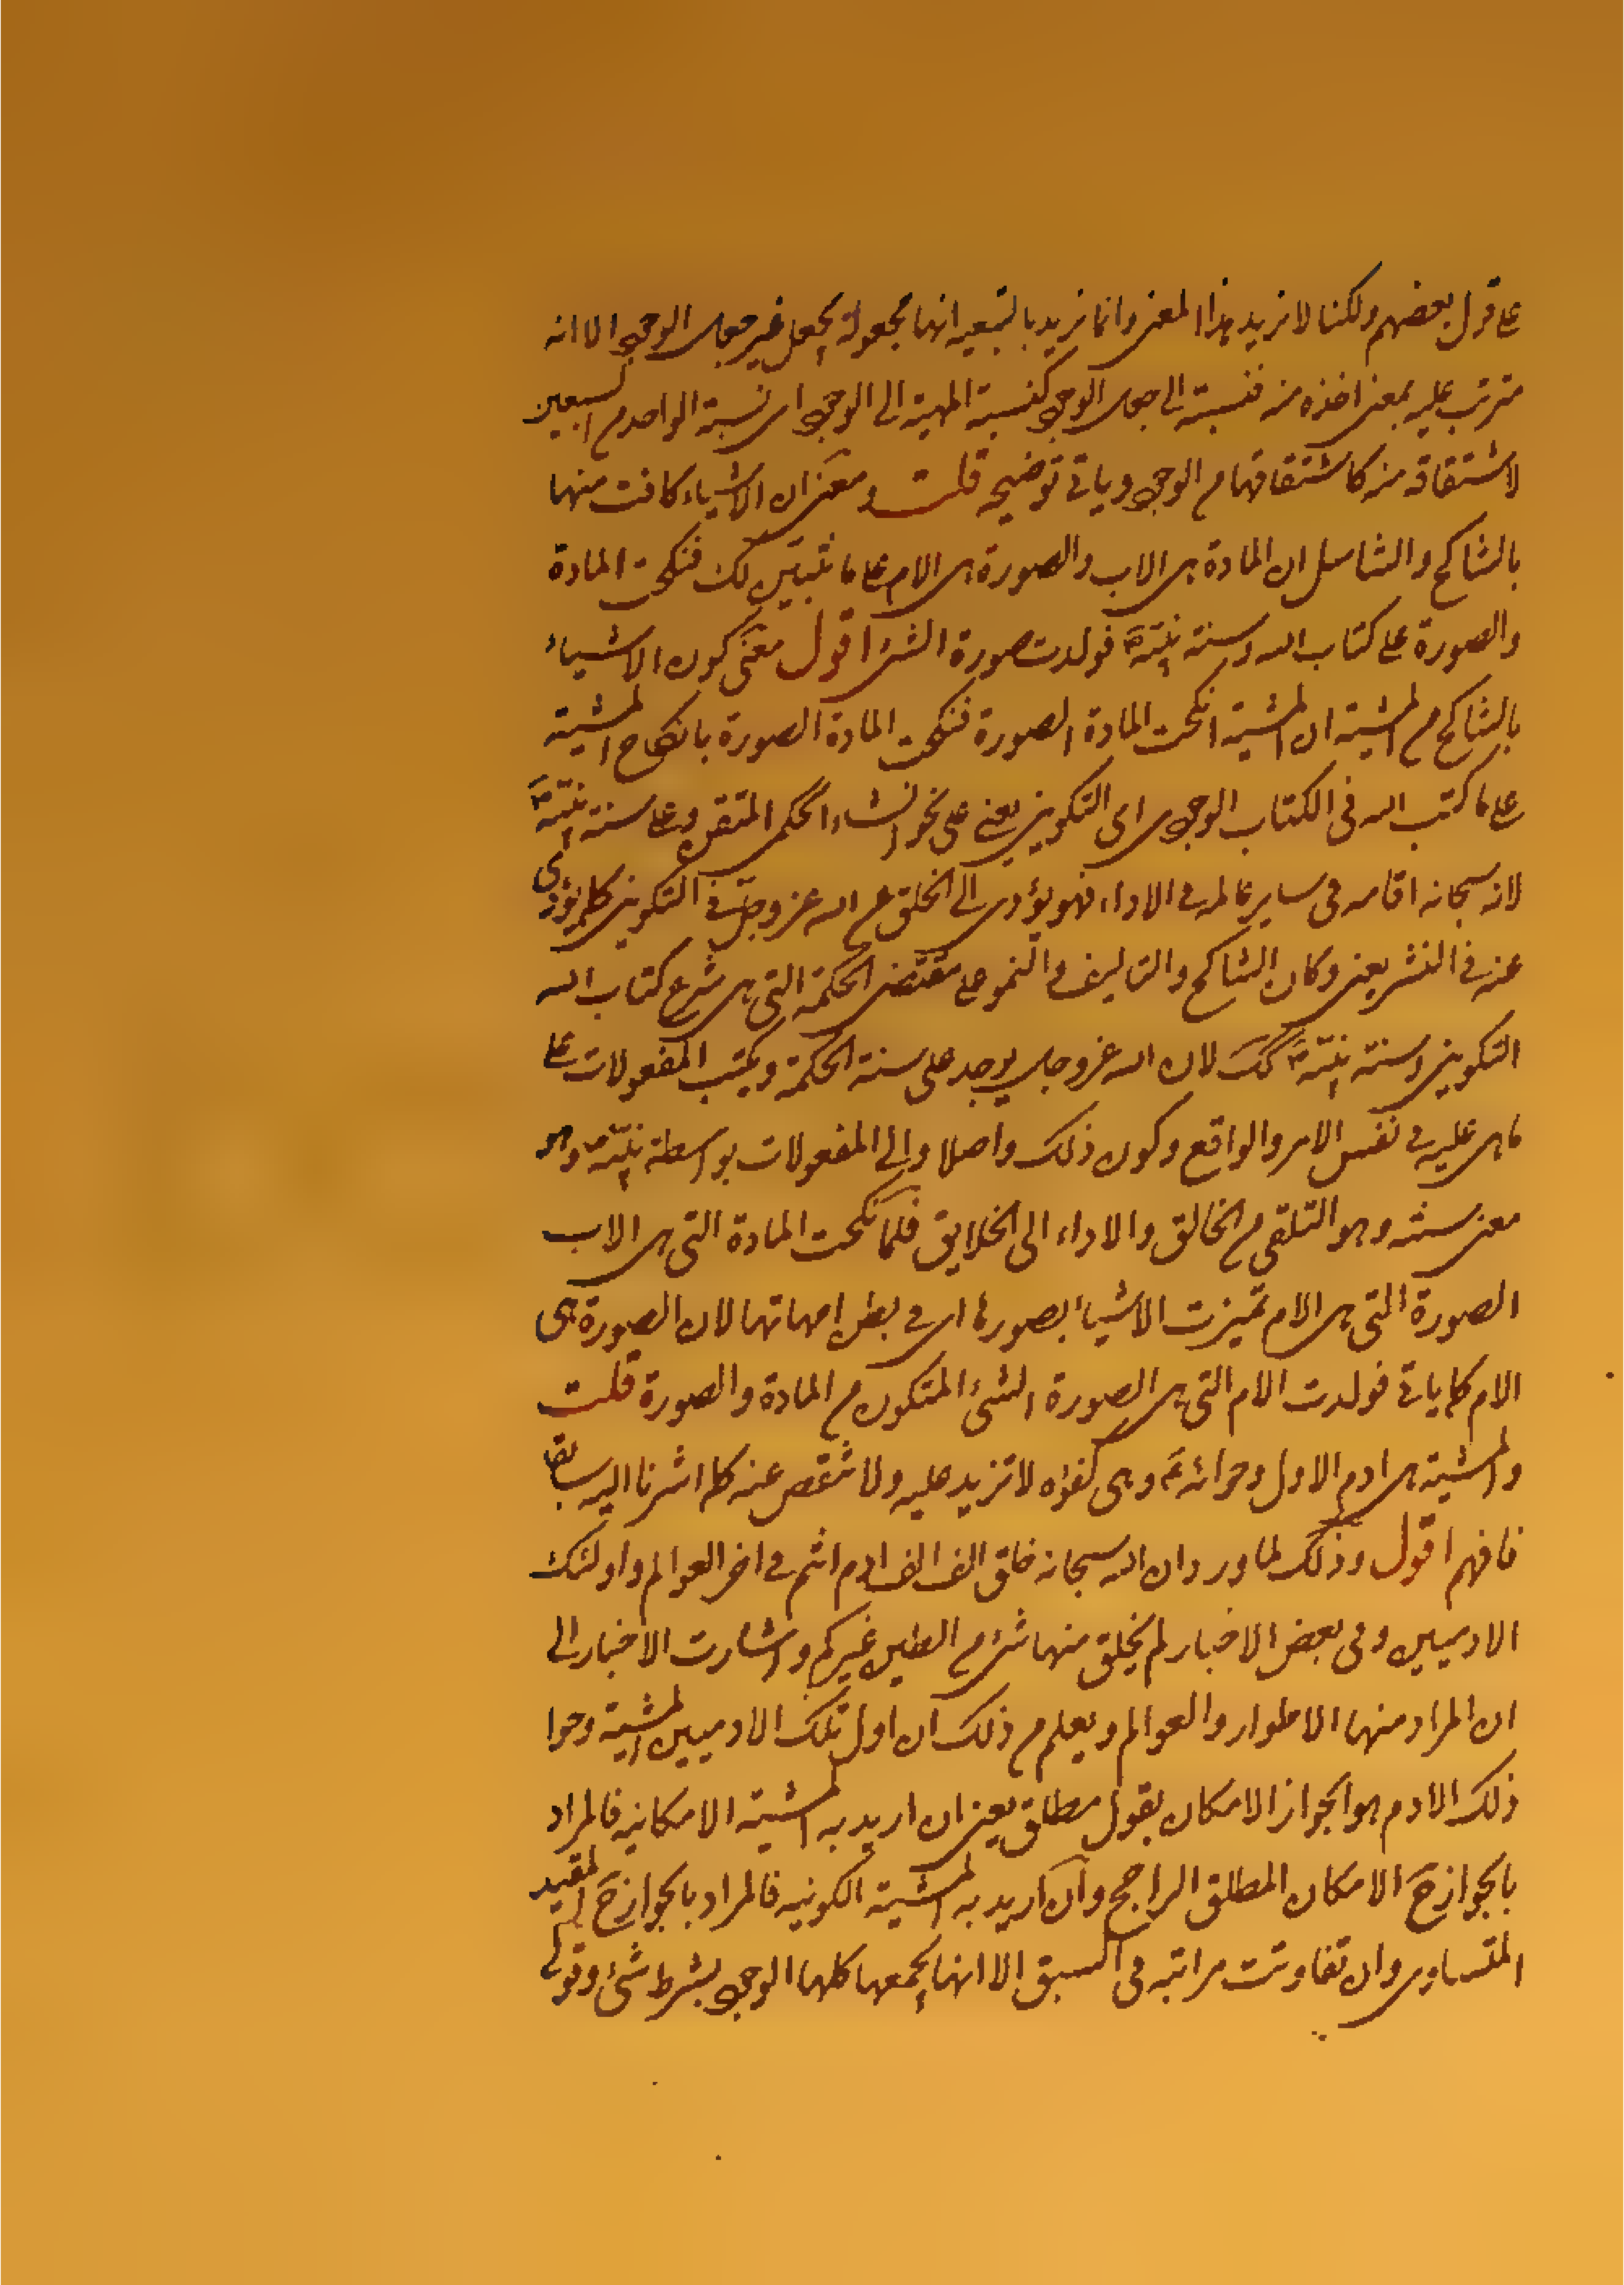 على قول بعضهم ولكنا لا نريد هذا المعنى وانما نريد بالتبعيه انها مجعولة بجعل غير جعل الوجود الا انه
مترتب عليه بمعنى اخذه منه فنسبته الى جعل الوجود كنسبة المهية الى الوجود اى نسبة الواحد من السبعين
لاشتقاقه منه كاشتقاقها من الوجود وياتى توضيحه قلت ومعنى ان الاشياء كانت منها
بالتناكح والتناسل ان المادة هى الاب والصورة هى الام على ما نبين لك فنكحت المادة
والصورة على كتاب الله وسنة نبيه ص فولدت صورة الشئ اقول معنى كون الاشياء
بالتناكح من المشية ان المشية انكحت المادة الصورة فنكحت المادة الصورة بانكاح المشية
على ما كتب الله فى الكتاب الوجودى اى التكوينى يعنى على نحو انشاء الحكم المتقن وعلى سنة نبيه ص
لانه سبحانه اقامه فى ساير عالمه فى الاداء فهو يؤدى الى الخلق عن الله عز وجل فى التكوينى كما يؤدى
عنه فى التشريعى وكان التناكح والتاليف والنمو على مقتضى الحكمة التى هى شرع كتاب الله
التكوينى وسنة نبيه ص كك لان الله عز وجل يوجد على سنة الحكمة ويكتب المفعولات على
ما هى عليه فى نفس الامر والواقع وكون ذلك واصلا والى المفعولات بواسطة نبيه ص وهو
معنى سنته وهو التلقى من الخالق والاداء الى الخلايق فلما نكحت المادة التى هى الاب
الصورة التى هى الام تميزت الاشياء بصورها اى فى بطن امهاتها لان الصورة هى
الام كما ياتى فولدت الام التى هى الصورة الشئ المتكون من المادة والصورة قلت
والمشية هى ادم الاول وحوائه ع وهى كفؤه لا تزيد عليه ولا تنقص عنه كما اشرنا اليه سابقا
فافهم اقول وذلك لما ورد ان الله سبحانه خلق الف الف ادم انتم فى اخر العوالم واولئك
الادميين وفى بعض الاخبار لم يخلق منها شئ من الطين غيركم واشارت الاخبار الى
ان المراد منها الاطوار والعوالم ويعلم من ذلك ان اول تلك الادميين المشية وحوا
ذلك الادم هو الجواز الامكان بقول مطلق يعنى ان اريد به المشية الامكانيه فالمراد
بالجواز ح الامكان المطلق الراجح وان اريد به المشية الكونيه فالمراد بالجواز ح المقيد
المتساوى وان تفاوتت مراتبه فى السبق الا انها يجمعها كلها الوجود بشرط شئ وقولى